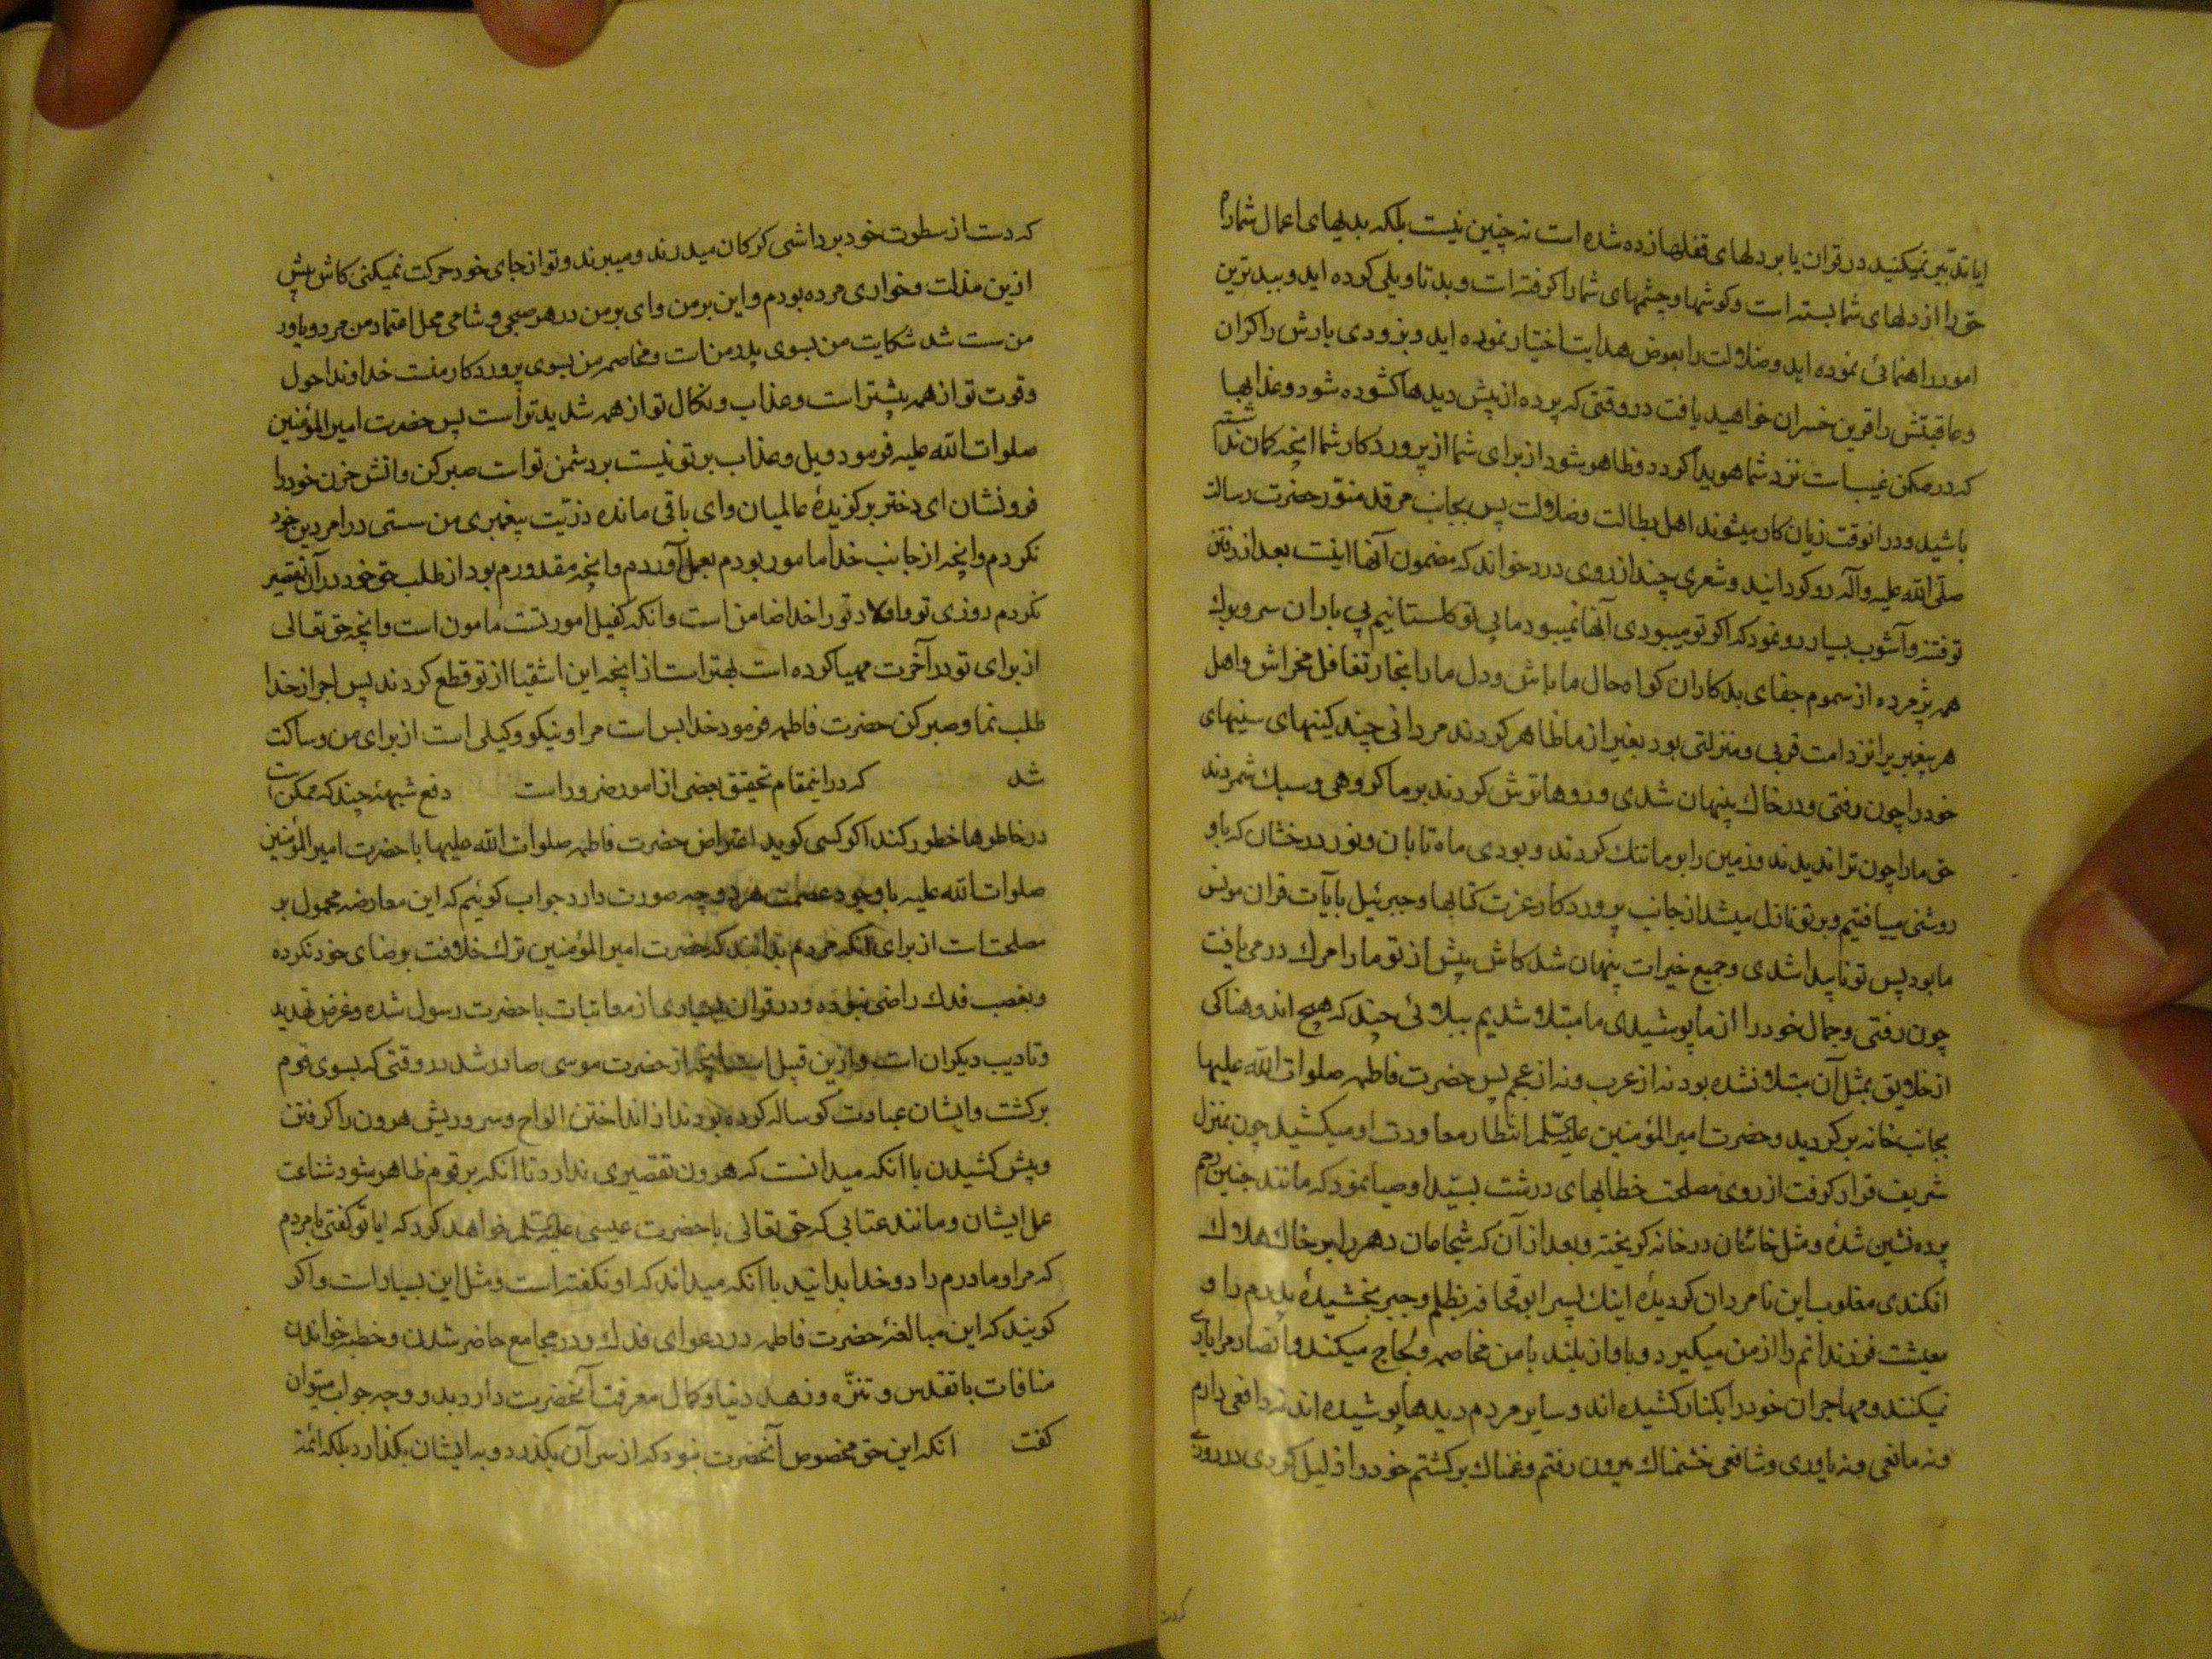 ایا تدبّر نمیکنید در قران یا بر دلهای قفلها زده شده است نه چنین نیست بلکه بدیهای اعمال شما راه
حق را از دلهای شما بسته است و کوشها و چشمهای شما را کرفته است و بد تاویلی کرده اید و ببد ترین
امور راهنمائی نموده اید و ضلالت را بعوض هدایت اختیار نموده اید و بزودی بارش را کران
و عاقبتش را قرین خسران خواهید یافت در وقتی که پرده از پیش دیدها کشوده شود و عذابها
که در مکمن غیب است نزد شما هویدا کردد و ظاهر شود از برای شما از پرورد کار شما انچه کمان نداشته
باشید و در انوقت زیان کار میشوند اهل بطالت و ضلالت پس بجانب مرقد منوّر حضرت رسالت
صلّی الله علیه و آله رو کردانید و شعری چند از روی درد خواند که مضمون آنها اینست بعد از رفتن
تو فتنه و آشوب بسیار رو نمود که اکر تو میبودی آنها نمیبود ما بی تو کلستانیم بی باران سر و برك
همه پژمرده از سموم جفای بد کاران کواه حال ما باش و دل ما را بخار تغافل مخراش و اهل
هر پیغمبر یرا نزد امت قربی و منزلتی بود بغیر از ما ظاهر کردند مردانی چند کینهای سینهای
خود را چون رفتی و در خاك پنهان شدی و روها ترش کردند بر ما کروهی و سبك شمردند
حق ما را چون ترا ندیدند و زمین را بر ما تنك کردند و بودی ماه تابان و نور درخشان که باو
روشنی مییافتیم و بر تو نازل میشد از جانب پرورد کار عزت کتابها و جبرئیل بآیات قران مونس
ما بود پس تو ناپیدا شدی و جمیع خیرات پنهان شد کاش پیش از تو ما را مرك در می یافت
چون رفتی و جمال خود را از ما پوشیدی ما مبتلا شدیم ببلائی چند که هیچ اندوهناکی
از خلایق بمثل آن مبتلا نشده بود نه از عرب و نه از عجم پس حضرت فاطمه صلوات الله علیها
بجانب خانه بر کردید و حضرت امیر المؤمنین علیه السلم انتظار معاودت او میکشید چون بمنزل
شریف قرار کرفت از روی مصلحت خطابهای درشت بسیّد اوصیا نمود که مانند جنین رحم
پرده نشین شدهٔ و مثل خائنان در خانه کریخته و بعد از آن که شجاعان دهر را بر خاك هلاك
افکندی مغلوب این نامردان کردیدهٔ اینك پسر ابو قحافه بظلم و جبر بخشیدهٔ پدرم را و
معیشت فرزندانم را از من میکیرد و باواز بلند با من مخاصمه و لجاج میکند و انصار مرا یاری
نمیکنند و مهاجران خود را بکنار کشیده اند و سایر مردم دیدها پوشیده اند نه دافعی دارم
و نه مانعی و نه یاوری و شافعی خشمناك بیرون رفتم و غمناك بر کشتم خود را ذلیل کردی در روزی
که دست از سطوت خود برداشی کرکان میدرند و میبرند و تو از جای خود حرکت نمیکنی کاش پیش
ازین مذلت و خواری مرده بودم و این بر من وای بر من در هر صبحی و شامی محل اعتماد من مرد و یاور
من سست شد شکایت من بسوی پدر من است و مخاصمه من بسوی پرورد کار منست خداوندا حول
و قوت تو از همه بیشتر است و عذاب و نکال تو از همه شدید تر است پس حضرت امیر المؤمنین
صلوات الله علیه فرمود ویل و عذاب بر تو نیست بر دشمن تو است صبر کن و اتش حزن خود را
فرو نشان ای دختر برکزیدهٔ عالمیان و ای باقی مانده ذرّیت پیغمبری من سستی در امر دین خود
نکردم و انچه از جانب خدا مامور بودم بعمل آوردم و انچه مقدورم بود از طلب حق خود در آن تقصیر
نکردم روزی تو و اولاد تو را خدا ضامن است و انکه کفیل امور تست مامون است و انچه حق تعالی
از برای تو در آخرت مهیا کرده است بهتر است از انچه این اشقیا از تو قطع کردند پس اجر از خدا
طلب نما و صبر کن حضرت فاطمه فرمود خدا بس است مرا و نیکو وکیلی است از برای من و ساکت
شد که در اینمقام تحقیق بعضی از امور ضرور است دفع شبهۀ چند که ممکن است
در خاطرها خطور کند اکر کسی کوید اعتراض حضرت فاطمه صلوات الله علیها با حضرت امیر المؤمنین
صلوات الله علیه با وجود عصمت هر دو چه صورت دارد جواب کوئیم که این معارضه محمول بر
مصلحت است از برای انکه مردم بدانند که حضرت امیر المؤمنین ترك خلافت برضای خود نکرده
و بغصب فدك راضی نبوده و در قران بسیاری از معاتبات با حضرت رسول شده و غرض تهدید
و تادیب دیکران است و ازین قبیل است انچه از حضرت موسی صادر شد در وقتی که بسوی قوم
برکشت و ایشان عبادت کوساله کرده بودند از انداختن الواح و سر و ریش هرون را کرفتن
و پیش کشیدن با انکه میدانست که هرون تقصیری ندارد تا انکه بر قوم ظاهر شود شناعت
عمل ایشان و مانند عتابی که حق تعالی با حضرت عیسی علیه السلم خواهد کرد که ایا تو کفتی بمردم
که مرا و مادرم را دو خدا بدانید با انکه میداند که او نکفته است و مثل این بسیار است و اکر
کویند که این مبالغۀ حضرت فاطمه در دعوای فدك و در مجامع حاضر شدن و خطبه خواندن
منافات با تقدس و تنزّه و زهد دنیا و کمال معرفت آنحضرت دارد بدو وجه جواب میتوان
کفت انکه این حق مخصوص آنحضرت نبود که از سر آن بکذرد و به ایشان بکذارد بلکه ائمۀ